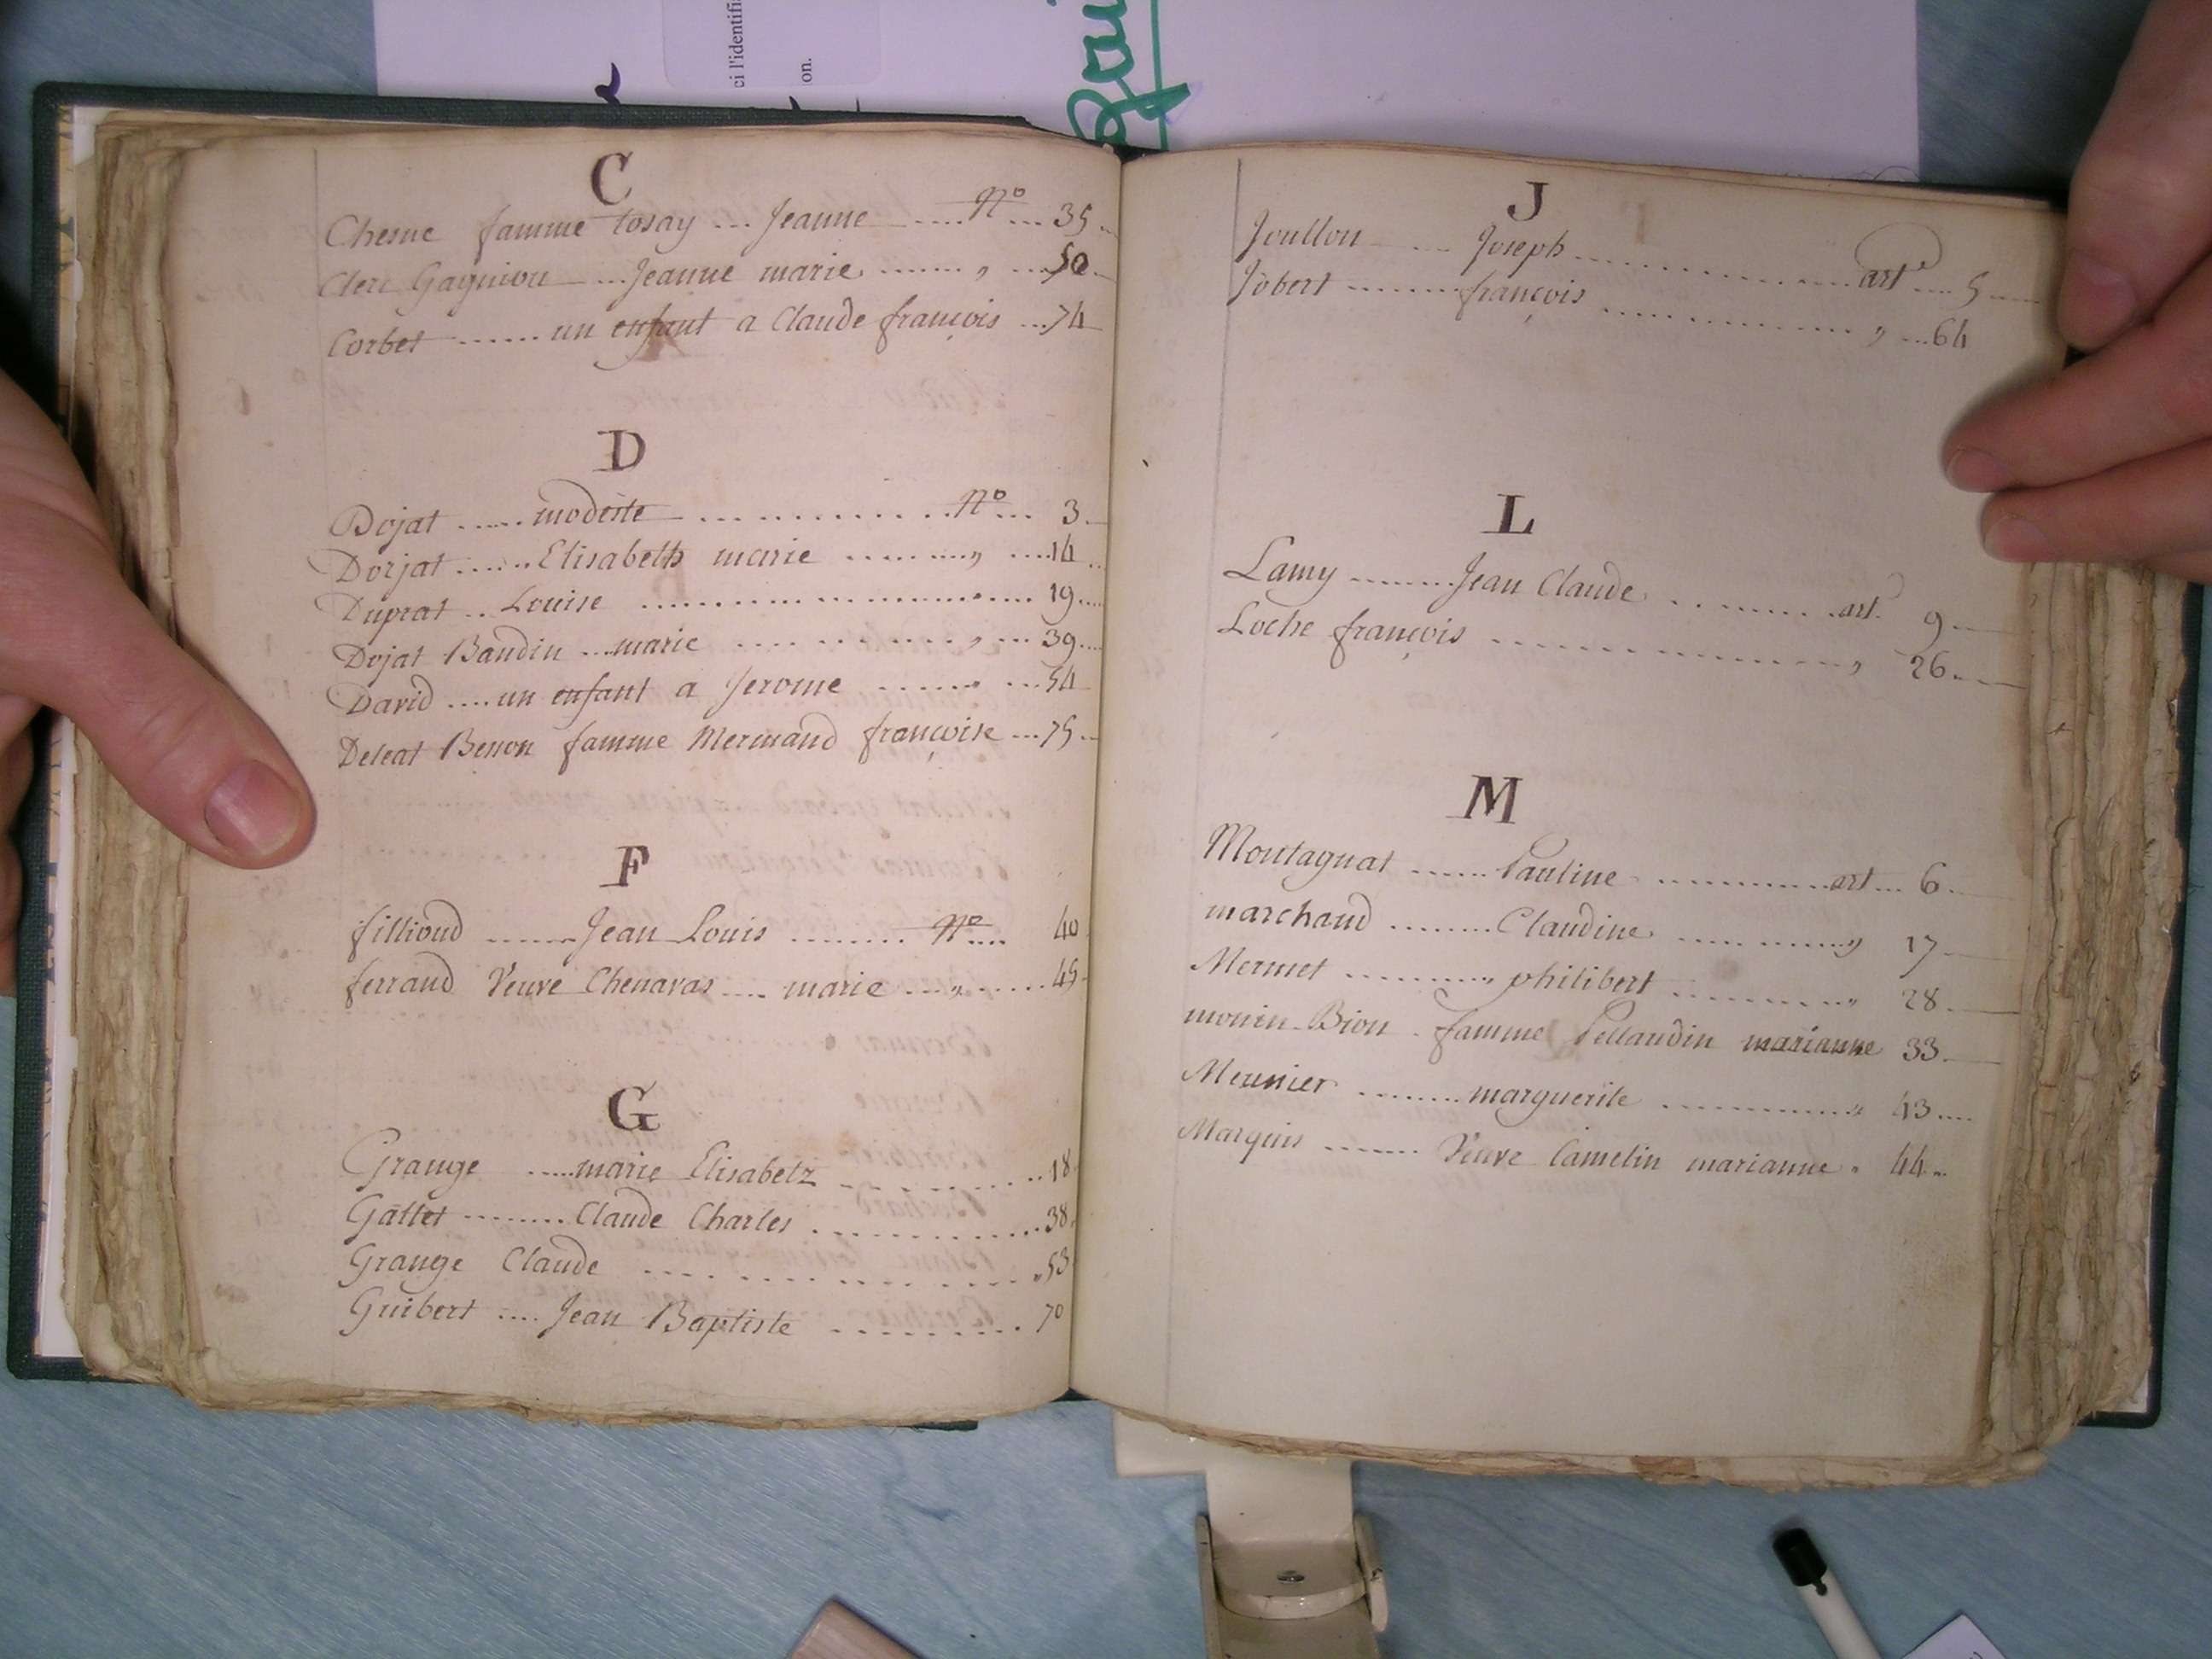 ci l'identifi
on.
C
Chesne famme tosay ... Jeanne ..... N° ... 35
Clerc Gagnion ... Jeanne marie ....... " ... 50
Corbet ...... un enfant a Claude françois ... 74
D
Dojat ...... modeste ............ N° ... 3
Dorjat ...... Elisabeth marie ........ " .... 14
Duprat .. Louise .................... 19
Dojat Baudin ... marie ............ " ... 39
David .... un enfant a Jerome ...... " ... 54
Deleat Benon famme Mermand françoise ... 75
F
fillioud ....... Jean Louis ........ N° .... 40
ferrand Veuve Chenavas .... marie ... " ...... 45
G
Grange ..... marie Elisabetz .......... 18
Gattet ........ Claude Charles ............ 38
Grange Claude .................... " 53
Guibert .... Jean Baptiste .......... 70
J
Joullon ...... Joseph .................. art ... 5
Jobert ........ françois ................ " ... 64
L
Lamy ........ Jean Claude .......... art. 9
Loche françois .................... " 26
M
Montagnat ...... Pauline ............ art ... 6
marchand ........ Claudine ............ " 17
Mermet .......... philibert ............ " 28
monin Bion famme Pellaudin marianne 33
Meunier ........ marguerite ............ " 43
Marquis ....... Veuve Camelin marianne " 44